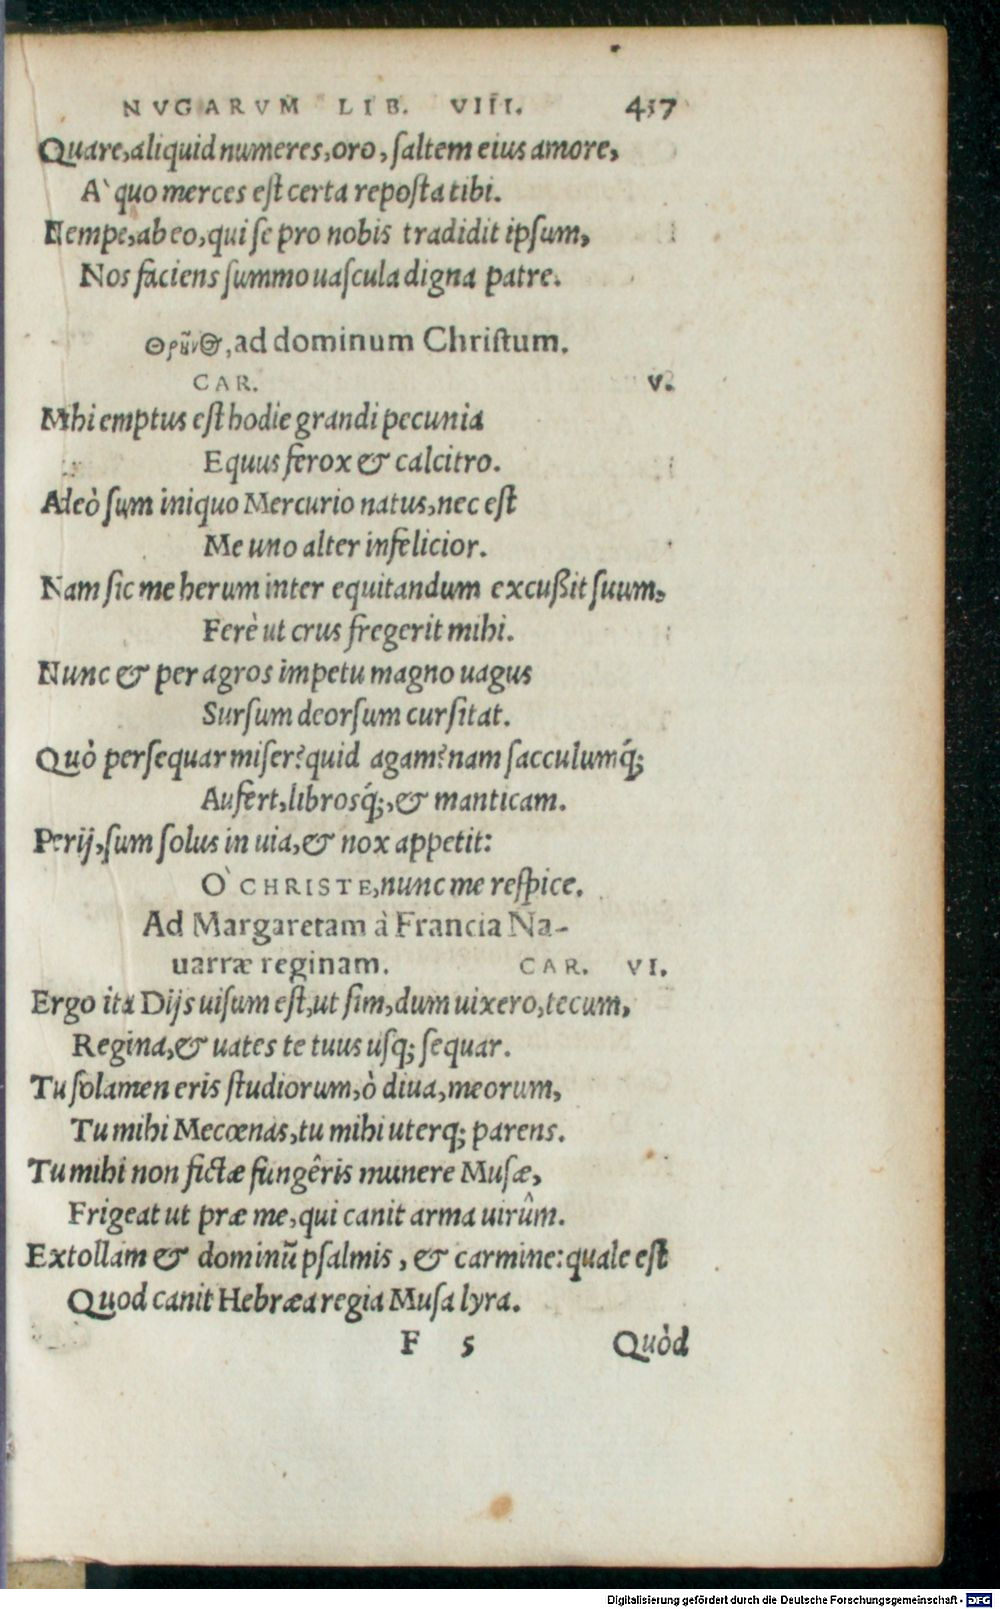 NVGARVM LIB. VIII. 437
Quare, aliquid numeres, oro, ſaltem eius amore,
A` quo merces eſt certa repoſta tibi.
Nempe, ab eo, qui ſe pro nobis tradidit ipſum,
Nos faciens ſummo uaſcula digna patre.
Θρῆνος, ad dominum Chriſtum.
CAR. V.
Mihi emptus eſt hodie grandi pecunia
Equus ferox & calcitro.
Adeò ſum iniquo Mercurio natus, nec eſt
Me uno alter infelicior.
Nam ſic me herum inter equitandum excußit ſuum,
Ferè ut crus fregerit mihi.
Nunc & per agros impetu magno uagus
Surſum deorſum curſitat.
Quò perſequar miſer? quid agam? nam ſacculumq́;
Aufert, librosq́;, & manticam.
Perij, ſum ſolus in uia, & nox appetit:
O` CHRISTE, nunc me reſpice.
Ad Margaretam à Francia Na-
uarræ reginam. CAR. VI.
Ergo ita Dijs uiſum eſt, ut ſim, dum uixero, tecum,
Regina, & uates te tuus uſq; ſequar.
Tu ſolamen eris ſtudiorum, ò diua, meorum,
Tu mihi Mecœnas, tu mihi uterq; parens.
Tu mihi non fictæ fungêris munere Muſæ,
Frigeat ut præ me, qui canit arma uirûm.
Extollam & dominũ pſalmis, & carmine: quale eſt
Quod canit Hebræa regia Muſa lyra.
F 5 Quòd
Digitalisierung gefördert durch die Deutsche Forschungsgemeinschaft - DFG